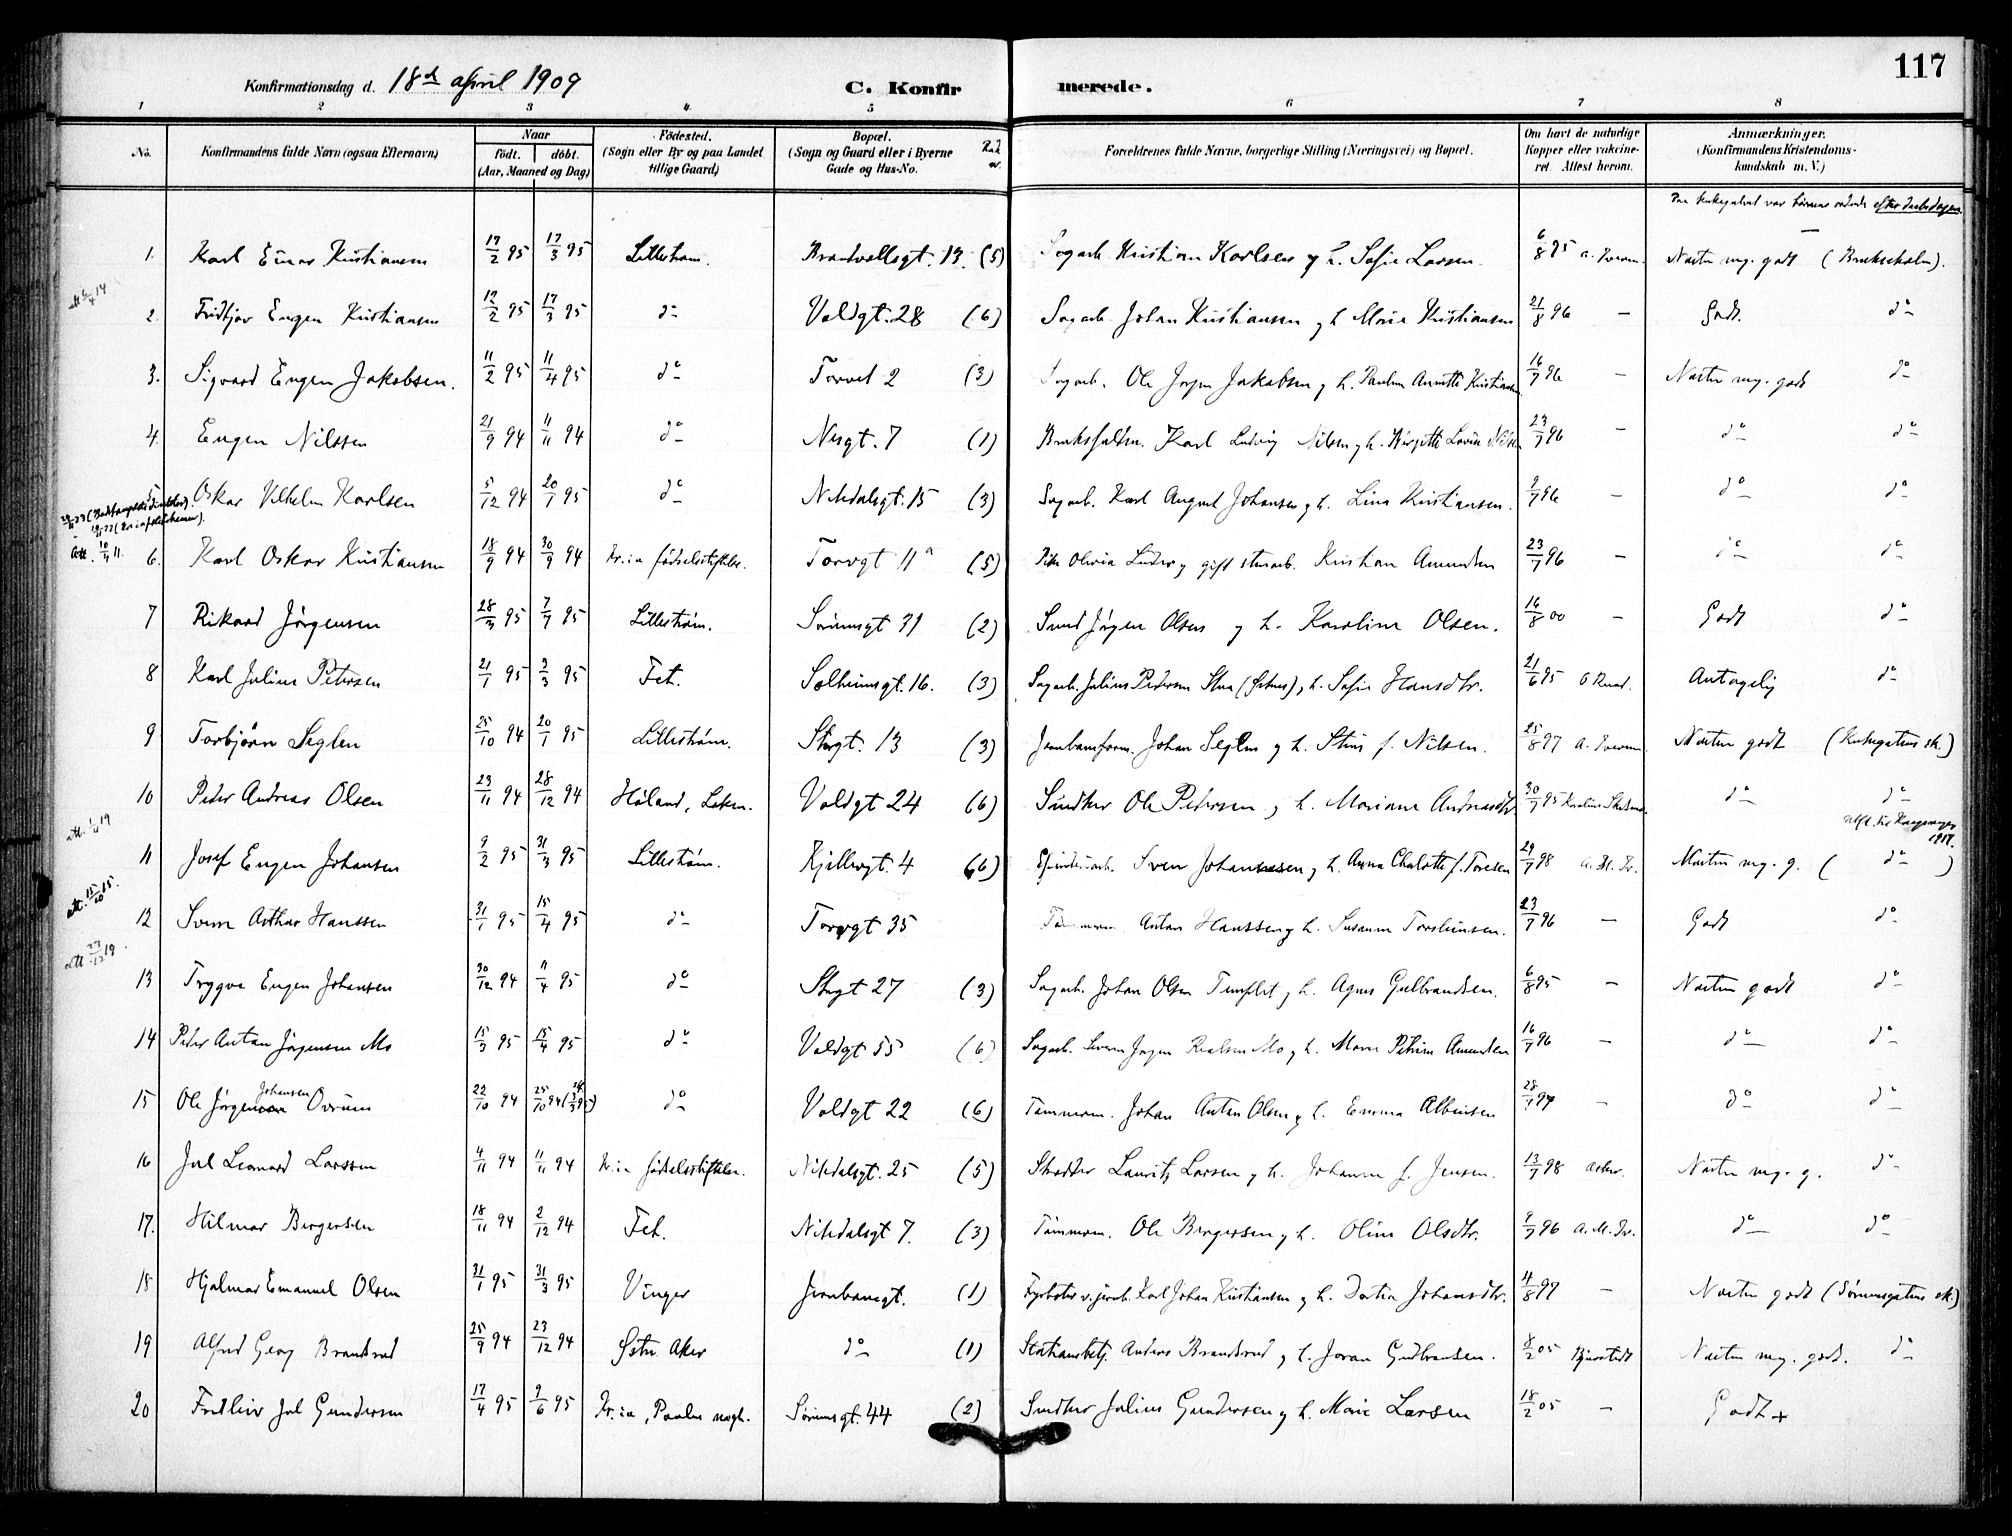 117
Konfirmationsdag d. 18de april 1909 C. Konfirmerede.
1 2 3 4 5 6 7 8
No. Konfirmandens fulde Navn (ogsaa Efternavn) Naar født. døbt. (Aar, Maaned og Dag) Fødested. (Sogn eller By og paa Landet tillige Gaard) Bopæl. (Sogn og Gaard eller i Byerne Gade og Hus-No. Forældrenes fulde Navne, borgerlige Stilling (Næringsvei) og Bopæl. Om havt de naturlige Kopper eller vaccineret. Attest herom. Anmærkninger. (Konfirmandens Kristendomskundskab m. V.)
efter daabsdagen
1. Karl Einar Kristiansen 17/2 95 17/3 95 Lillestrøm. Brandvollsgt. 13. (5) Sagarb. Kristian Karlsen og h. Sofie Larsen 6/8 95 Meget godt
2. Fridtjov Eugen Kristiansen 12/2 95 17/3 95 do Voldgt. 28 (6) Sagarb. Johan Kristiansen og h. Marie Kristiansen 21/8 96 — Godt. do
3. Sigvard Eugen Jakobsen. 11/2 95 11/4 95 do Torvet 2 (3) Sagarb. Ole Jørgen Jakobsen og h. Pauline Annette Kristiansen 16/7 96 — Næsten mg. godt do
4. Eugen Nilssen 21/9 94 11/11 94 do Nesgt. 7 (1) Karl Ludvig Nilsen og h. Birgitte Lovise Nilsen 23/7 96 — do do
5 Oskar Vilhelm Karlsen 5/12 94 20/1 95 do Nitedalsgt. 15 (3) Sagarb. Karl August Johansen og h. Lina Kristiansen. 9/7 96 — do do
att. 10/4 11.
6. Karl Oskar Kristiansen 18/9 94 30/9 94 Kr.ia fødselsstiftelse. Torvgt 11a (5) Pike Olivia gift stenarb. Kristian Amundsen 23/7 96 — do do
7 Rikard Jørgensen 28/3 95 7/7 95 Lillestrøm. Sørumsgt 31 (2) Smed Jørgen Olsen og h. Karoline Olsen. 16/8 00 — Godt do
8 Karl Julius Petersen 21/1 95 3/3 95 Fet. Solheimsgt. 16. (3) Sagarb. Julius Pedersen og h. Sofie Hansdtr. 21/6 95 Antagelig do
9 Torbjørn Seglen 25/10 94 20/1 95 Lillestrøm. Storgt. 13 (3) Jernbaneform. Johan Seglen og h. Stine f. Nilsen. 25/8 97 Næsten godt (Kirkegatens sk.)
10 Peder Andreas Olsen 23/11 94 28/12 94 Høland, Løken. Voldgt 24 (6) Snedker Ole Petersen og h. Mariane Andreasdtr. 30/7 95 do do
att. 1/4 19
11 Josef Eugen Johansen 9/2 95 31/3 95 Lillestrøm. Kjellergt. 4 (6) Sven Johannesen og h. Anna Charlotte f. Toresen 29/7 98 Næsten mg. g. ( do )
att. 15/10 15.
12 Svein Arthur Hanssen 31/1 95 15/4 95 do Torvgt 35 Tømmerm. Anton Hanssen og h. Susanne Torsteinsen. 23/7 96 — Godt do
att 23/12 19.
13 Trygve Eugen Johansen 30/12 94 11/4 95 do Storgt 27 (3) Sagarb. Johan Olsen og h. Agnes Gulbrandsen. 6/8 95 — Næsten godt do
14 Peder Anton Jørgensen Mo 15/3 95 15/4 95 do Voldgt 55 (6) Sagarb. Mo og h. Maren Petrine Amundsen 16/7 96 — do do
15 Ole Jørgen Johansen Ovrum 22/10 94 25/10 94 do Voldgt 22 (6) Tømmerm. Johan Anton Olsen og h. Emma Albinsen — do do
16 Jul Leonard Larssen 4/11 94 11/11 94 Kr.ia fødselsstiftelse. Nitedalsgt. 25 (5) Skrædder Lauritz Larsen og h. Johanne f. Jensen. 13/7 98 Næsten mg. g. do
17. Hilmar Bergersen 18/11 94 2/12 94 Fet. Nitedalsgt 7. (3) Tømmerm. Ole Bergersen og h. Oline Olsdtr. 9/7 96 do do
18 Hjalmar Emanuel Olsen 31/1 95 31/3 95 Vinger Jernbanegt. (1) Fyrbøter v. jernb. Karl Johan Kristiansen og h. Dortea Johansdtr. 4/8 97 — Næsten godt (Sørumsgatens sk.)
19 Alfred Georg Brandsrud 25/9 94 23/12 94 Østre Aker do (1) Stationsbetj. Anders Brandsrud og h. Joran Gudbrandsen. 8/2 05 Næsten mg. godt. do
20 Fridleiv Jul Gundersen 17/4 95 9/6 95 Kr.ia, Paulus mgh. Sørumsgt. 44 (2) Snedker Julius Gundersen og h. Marie Larsen 18/2 05 — Godt +